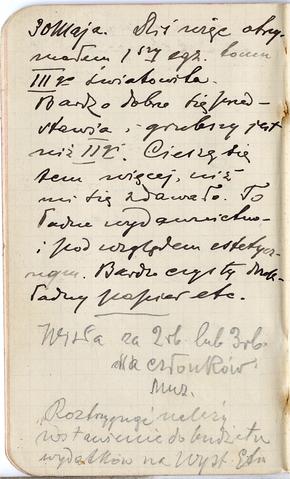 30 Maja. Dziś więc otrzy-
małem 1szy egz. tomu
III go Światowita.
Bardzo dobrze się przed-
stawia, i grubszy jest
niż II gi. Cieszę się
tem więcej, niż
mi się zdawało. To
ładne wydawnictwo
i pod względem estetycz-
nym. Bardzo czysty druk
ładny papier etc.
Wisła za 2 rb. lub 3 rb.
dla członków
Muz.
Roztrzygnąć należy
wstawienie do budżetu
wydatków na Wyst. Etn